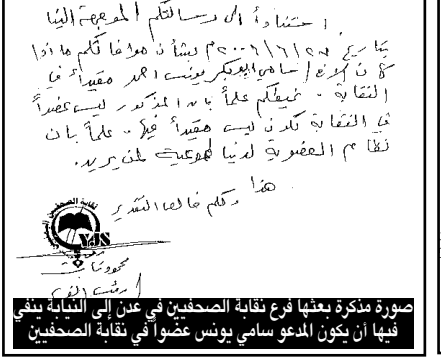 استناداً الى رسالتكم الموجهة الينا
بتاريخ ٢٠٠٦/٦/٢٠م بشأن موافاتكم ما اذا
كان الاخ / سامي ابوبكر يونس احمد مقيداً في
النقابة - نحيطكم علماً بان المذكور ليس عضواً
في النقابة كما ليس مقيداً فيها - علماً بان
نظام العضوية لدينا طوعية لمن يريد.
هذا
ولكم خالص التقدير
نقابة الصحفيين
YJS
محمود ثابت
صورة مذكرة بعثها فرع نقابة الصحفيين في عدن إلى النيابة ينفي
فيها أن يكون المدعو سامي يونس عضواً في نقابة الصحفيين